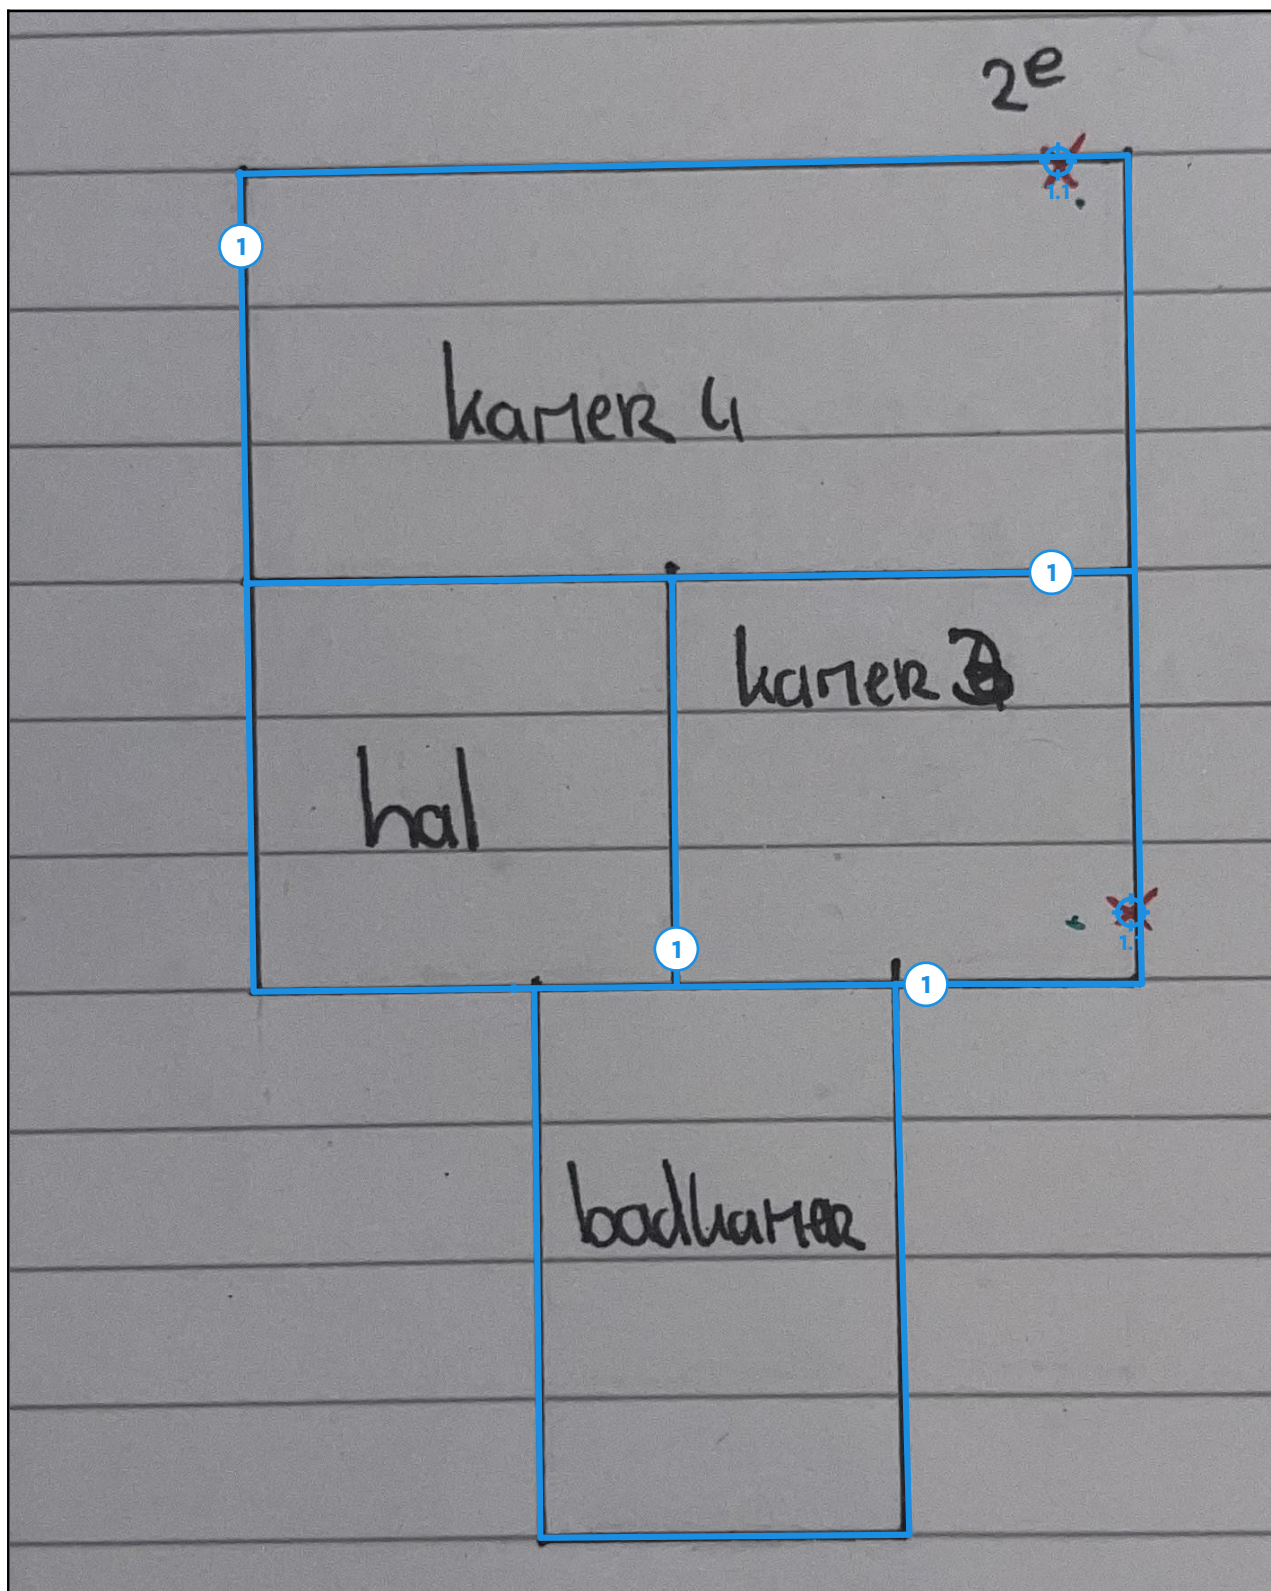 2e
1.1
1
kamer 4
1
kamer 3
hal
1.
1
1
badkamer